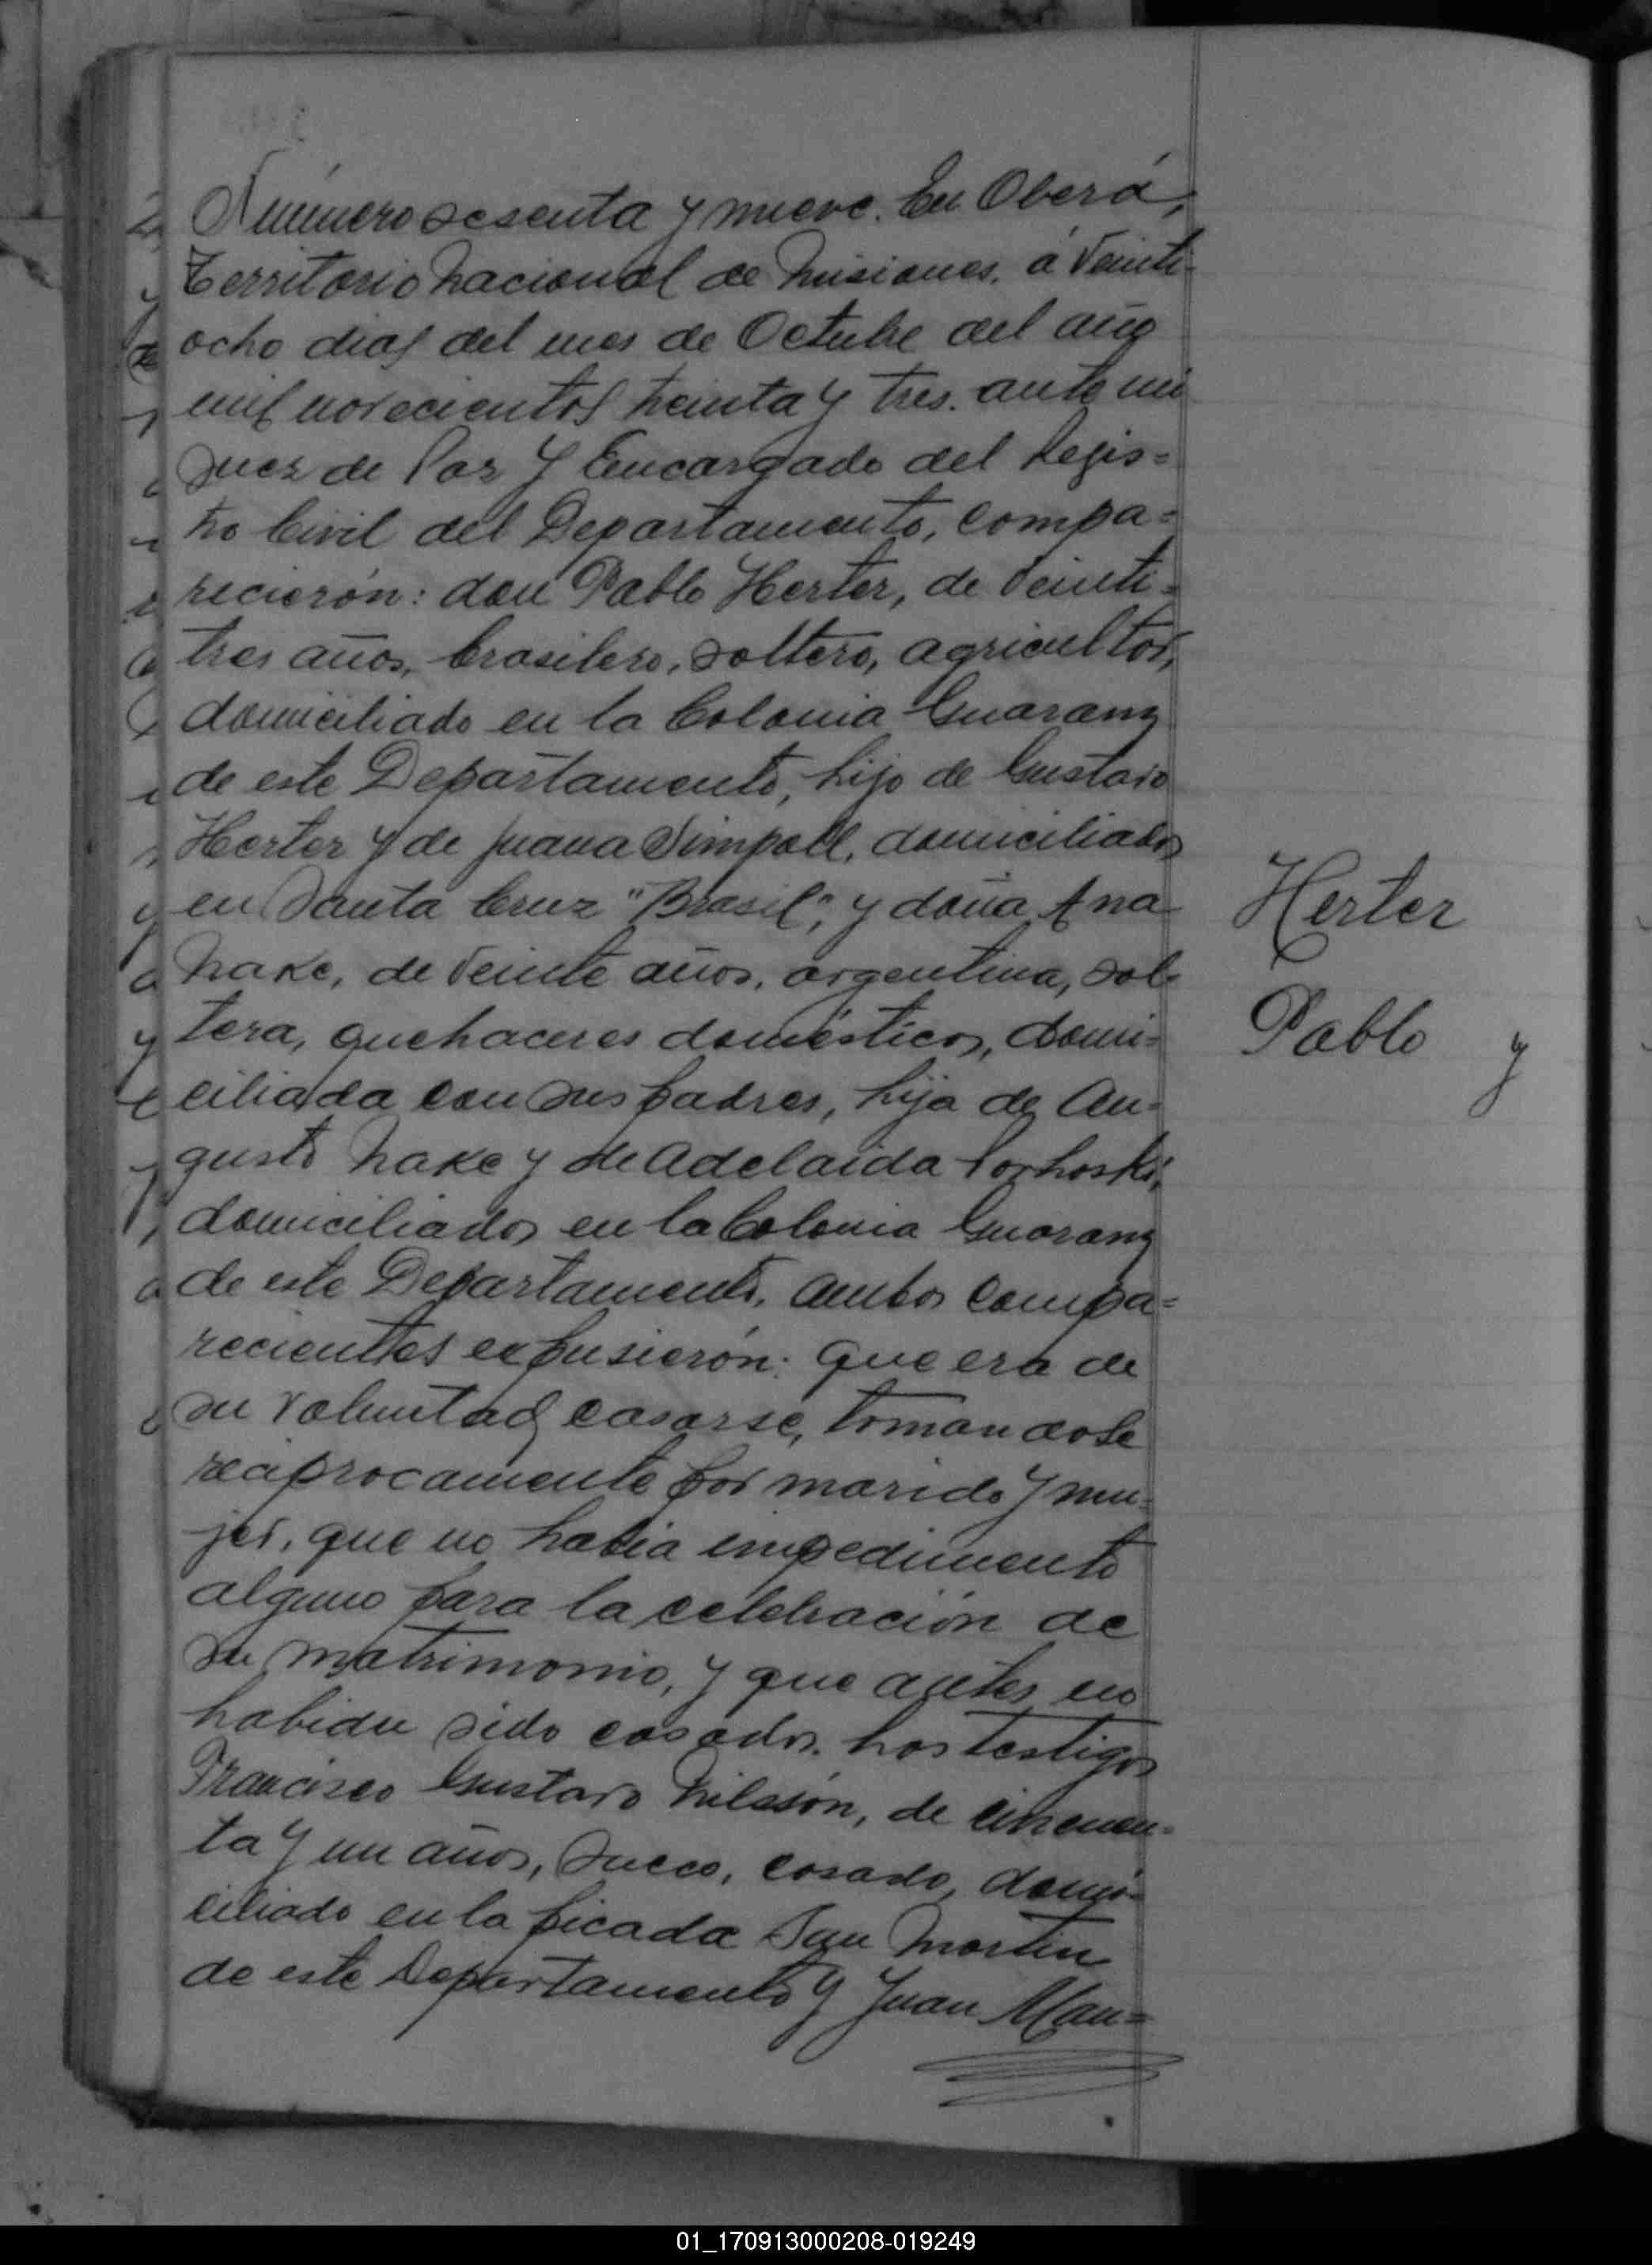 Número sesenta y nueve. En Oberá,
Territorio Nacional de Misiones, á veinti-
ocho dias del mes de Octubre del año
mil novecientos treinta y tres. ante mi
Juez de Paz y Encargado del Regis=
tro Civil del Departamento, compa=
recierón: don Pablo Herter, de veinti=
tres años, brasilero, soltero, agricultor,
domiciliado en la Colonia Guarany
de este Departamento, hijo de Gustavo
Herter y de Juana Simpall, domiciliados
en Santa Cruz "Brasil", y doña Ana
Nake, de veinte años, argentina, sol-
tera, quehaceres domésticos, domi=
ciliada con sus padres, hija de Au=
gusto Nake y de Adelaida
domiciliados en la Colonia Guarany
de este Departamento. Ambos compa=
recientes expusierón: que era de
su voluntad casarse, tomandose
reciprocamente por marido y mu=
jer, que no habia impedimento
alguno para la celebración de
su matrimonio, y que antes no
habidu sido casados. Los testigos
Francisco Gustavo Nilssón, de cincuen=
ta y un años, sueco, casado, domi=
ciliado en la picada San Martin
de este Departamento y Juan Man=
Herter
Pablo y
01_170913000208-019249